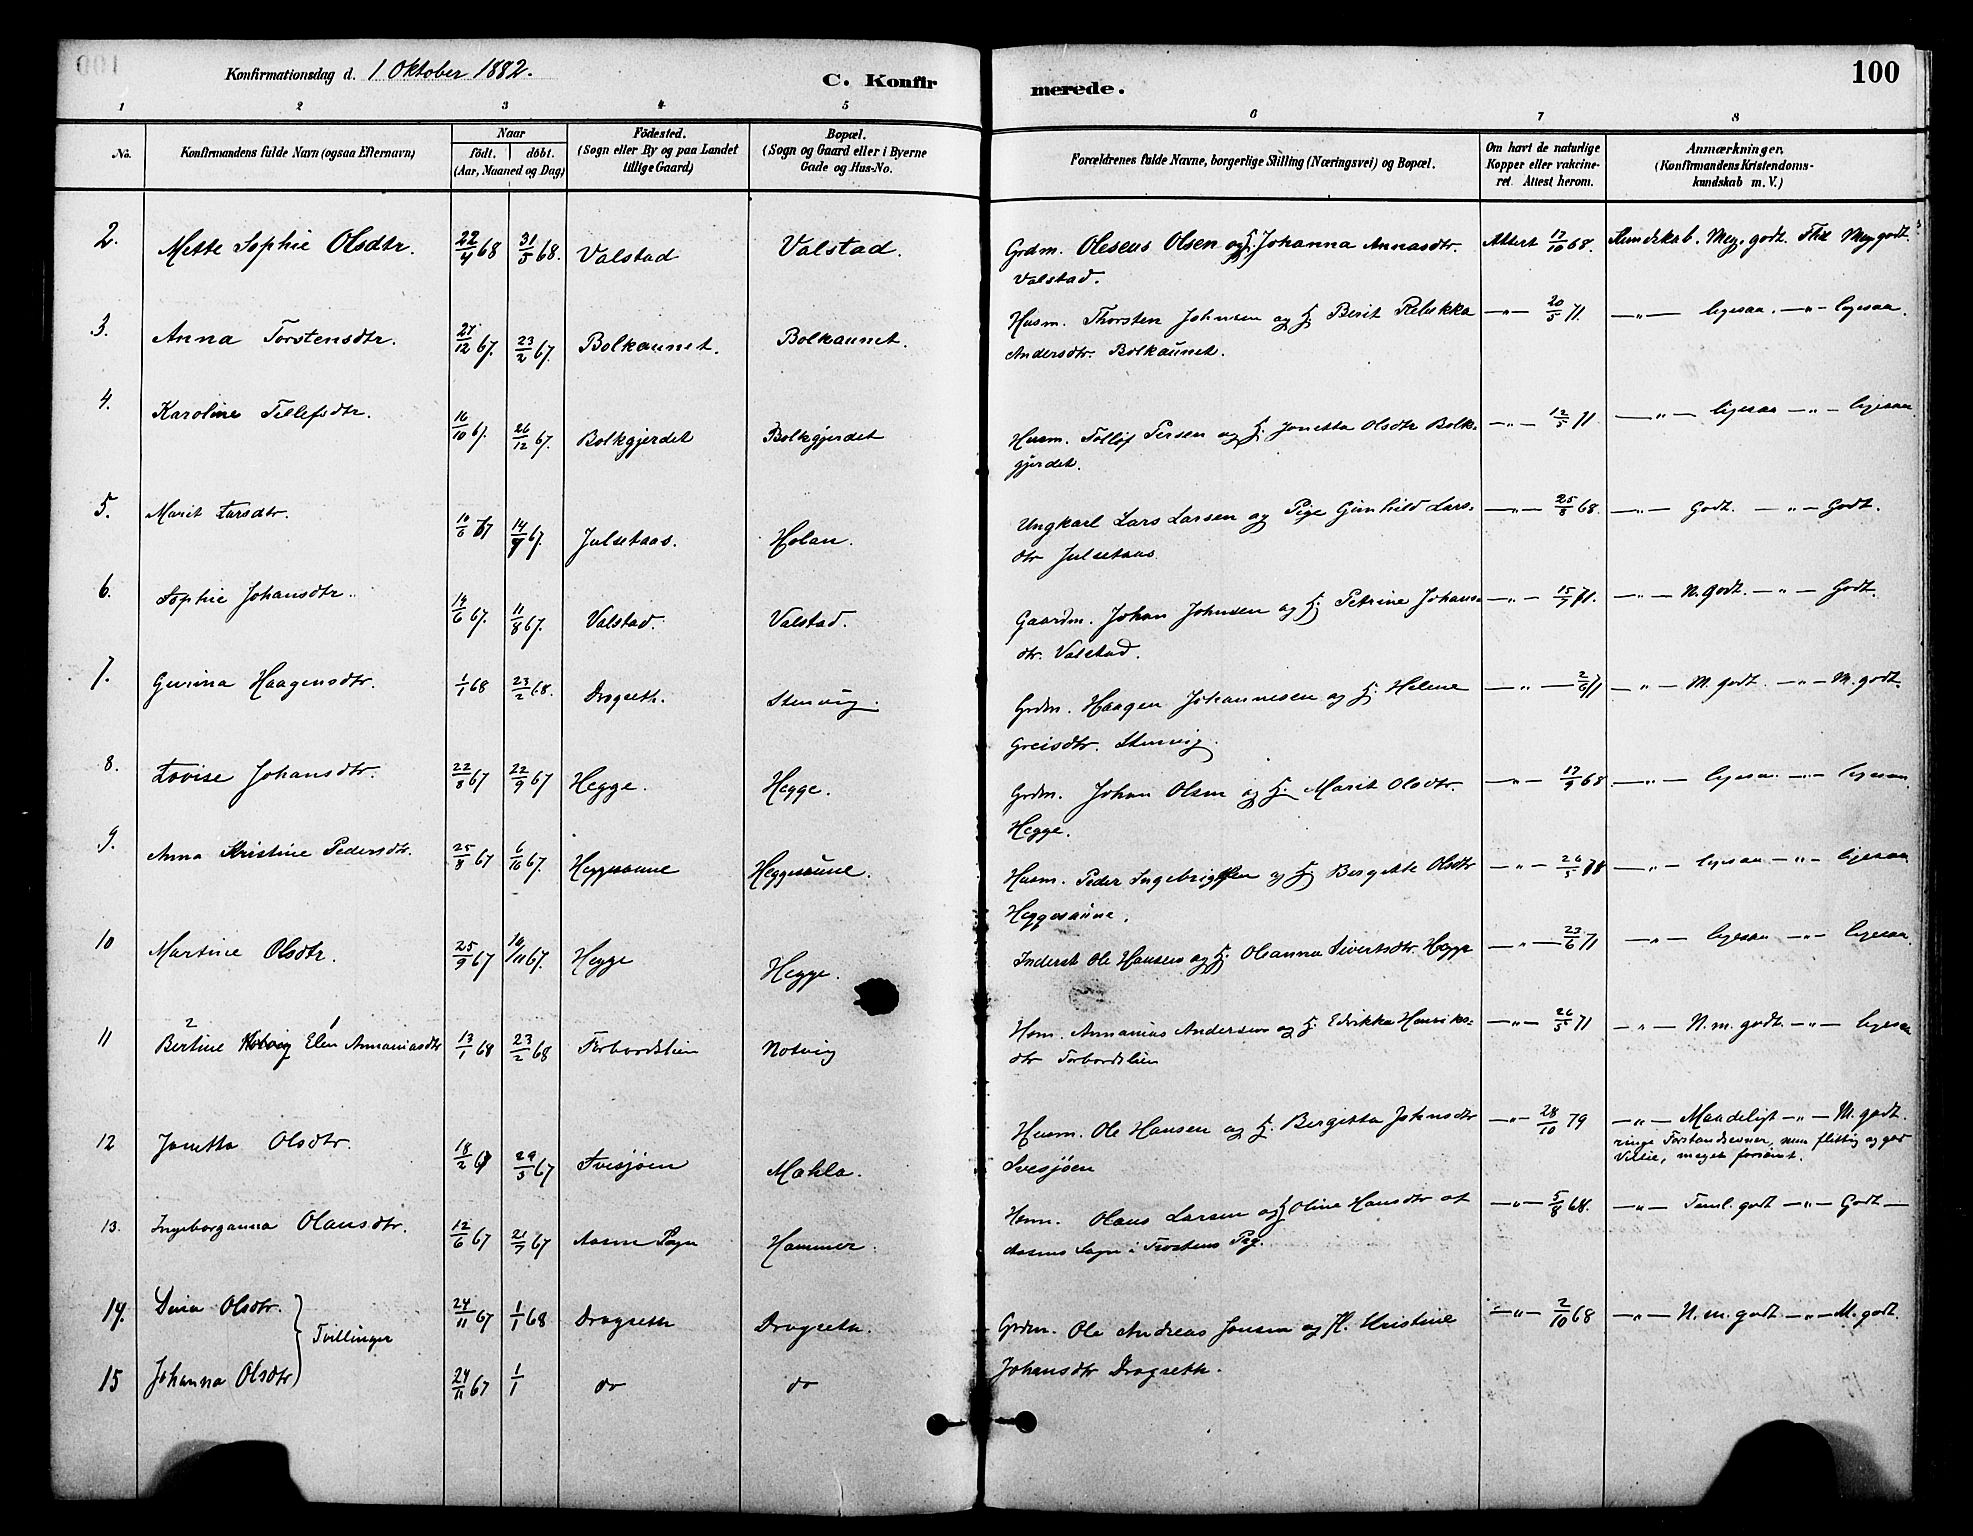 Konfirmationsdag d. 1 Oktober 1882.
C. Konfirmerede.
100
1 2 3 4 5 6 7 8
No.
Konfirmandens fulde Navn (ogsaa Efternavn)
Naar
födt. döbt.
(Aar, Maaned og Dag)
Födested.
(Sogn eller By og paa Landet
tillige Gaard)
Bopæl.
(Sogn og Gaard eller i Byerne
Gade og Hus-No.
Forældrenes fulde Navne, borgerlige Stilling (Næringsvei) og Bopæl.
Om havt de naturlige
Kopper eller vakcine-
ret. Attest herom.
Anmærkninger.
(Konfirmandens Kristendoms-
kundskab m. V.)
2. Mette Sophie Olsdtr. 22/4 68 31/5 68. Valstad Valstad. Grdm. Oleseus Olsen og H. Johanna Annasdtr. Attest 17/10 68. Kundskab. Meg. godt. Flid Meg godt.
Valstad.
3. Anna Torstensdtr. 27/12 67. 23/2 67. Bolkaunet. Bolkaunet. Husm. Thorsten Johnsen og H. Berit Rebekka —"— 20/5 71. —"— ligesaa. —"— ligesaa.
Andersdtr. Bolkaunet.
4. Karoline Tellefsdtr. 16/10 67. 26/12 67. Bolkgjerdet Bolkgjerdet Husm. Tollof Persen og H. Jonetta Olsdtr Bolk- —"— 12/5 71 —"— ligesaa —"— ligesaa
gjerdet.
5. Marit Larsdtr. 10/6 67 14/9 67. Julsetaas. Holan. Ungkarl Lars Larsen og Pige Gunhild Lars- —"— 25/8 68. —"— Godt. —"— Godt.
dtr Julsetaas.
6. Sophie Johansdtr. 14/6 67. 11/8 67. Valstad. Valstad. Gaardm. Johan Johnsen og H. Petrine Johans- —"— 15/7 71. —"— N. godt. —"— Godt.
dtr. Valstad.
7. Gurina Haagensdtr. 1/1 68 23/2 68. Dragseth. Stenvig. Grdm. Haagen Johannesen og H. Helene —"— 2/6 71 —"— M. godt. —"— M. godt.
Greisdtr. Stenvig.
8. Lovise Johansdtr. 22/8 67 22/9 67 Hegge. Hegge. Grdm. Johan Olsen og H. Marit Olsdtr. —"— 17/9 68 —"— ligesaa —"— ligesaa
Hegge.
9. Anna Kristine Pedersdtr. 25/8 67 6/10 67. Heggesaune Heggesaune. Husm. Peder Ingebrigtsen og H. Bergitte Olsdtr —"— 26/5 78 —"— ligesaa —"— ligesaa
Heggesaune.
10 Martine Olsdtr. 25/9 67 10/11 67. Hegge Hegge. Inderst Ole Hansen og H. Olianna Sivertsdtr. Hegge —"— 23/6 71 —"— ligesaa —"— ligesaa.
2 1
11 Bertine Elen Annaniasdtr 13/1 68 23/2 68 Forbordslien Notvig Hsm. Annanias Andersen og H. Edrikka Henriks- —"— 26/5 71 —"— N. m. godt. —"— ligesaa
dtr Forbordslien
12 Jonetta Olsdtr. 18/2 67 29/5 67 Svesjøen Makla. Husm. Ole Hansen og H. Bergitta Johnsdtr —"— 28/10 79 —"— Maadeligt —"— M. godt.
Svesjøen ringe Forstandsevner, men flittig og god
Villie, meget forsømt.
13. Ingeborganna Olausdtr. 12/6 67 21/7 67 Aasen Sogn Hammer. Hsm. Olaus Larsen og H. Oline Hansdtr af —"— 5/8 68. —"— Teml. godt —"— Godt —
Aasens Sogn i Frostens Pg.
14. Dina Olsdtr. 24/11 67 1/1 68 Dragseth Dragseth. Grdm. Ole Andreas Jonsen og H. Kristine —"— 2/10 68 —"— N. m. godt —"— M. godt.
Tvillinger
15 Johanna Olsdtr 24/11 67 1/1 do do Johansdtr Dragseth.